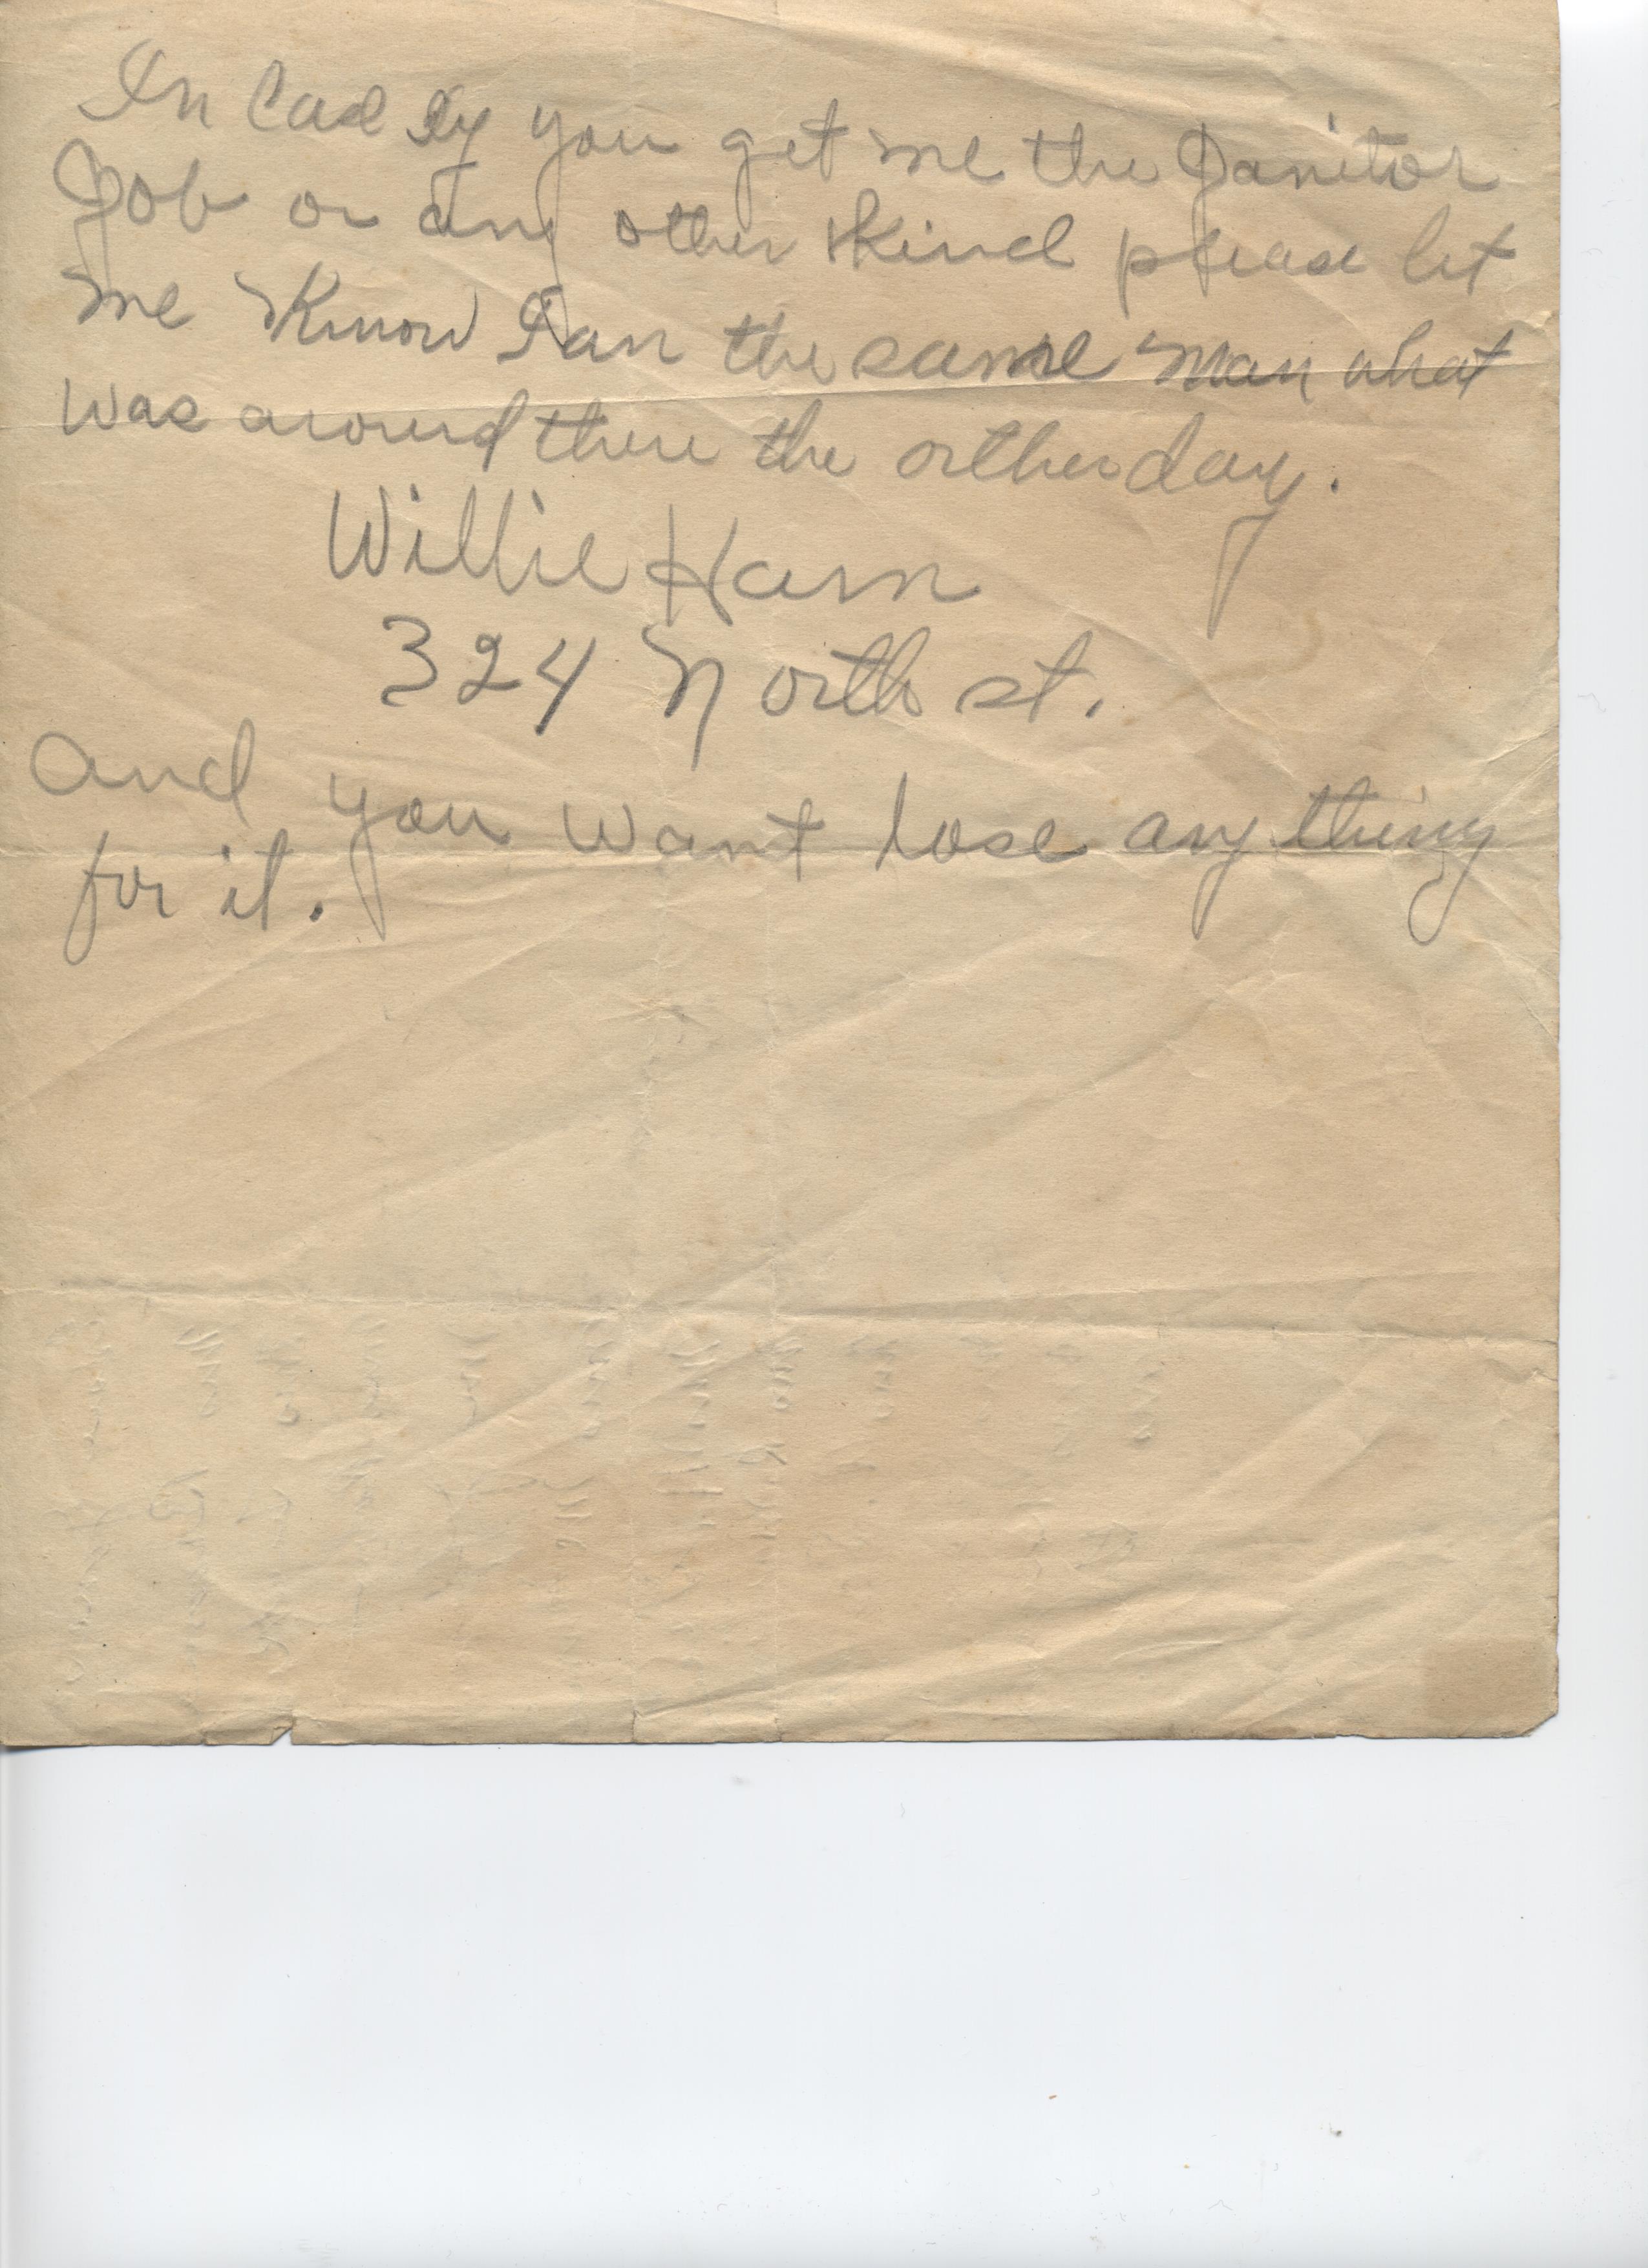 In Case If you get me the Janitor
Job or any other Kind please let
me Know I an the same man what
was around there the orther day.
Willie Harn
324 North st.
and you want lose any thing
for it.